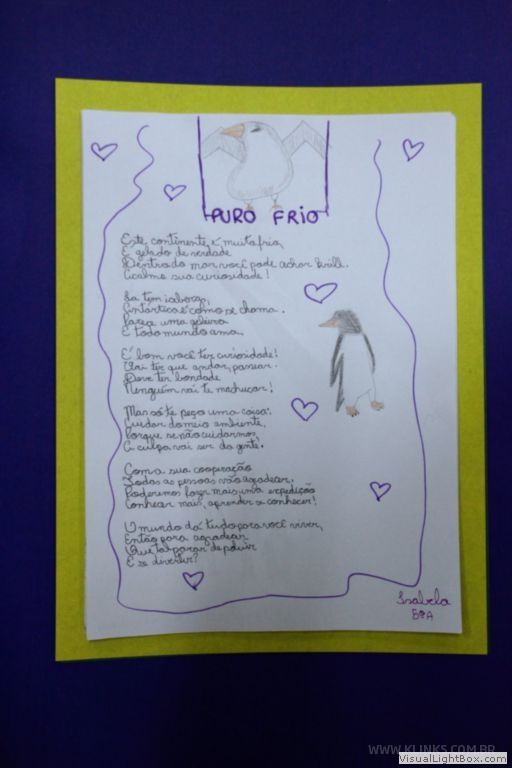 PURO FRIO
Este continente é muita fria,
E gelado de verdade
Dentro do mar você pode achar krill.
Acalme sua curiosidade!
La tem iceberg,
Antártica é como se chama.
Parece uma geleira
E todo mundo ama.
É bom você ter curiosidade!
Vai ter que andar, passear.
Deve ter bondade
Ninguém vai te machucar!
Mas só te peço uma coisa:
Cuidar do meio ambiente,
Porque se não cuidarmos,
A culpa vai ser da gente.
Com a sua cooperação
Todas as pessoas vão agradecer.
Poderemos fazer mais uma expedição
Conhecer mais, aprender e conhecer!
O mundo dá tudo para você viver,
Então para agradecer
Que tal parar de poluir
E se divertir?
Isabela
5ºA
WWW.KLINKS.COM.BR
VisualLightBox.com